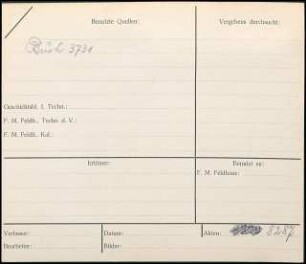 Benutzte Quellen:
Vergebens durchsucht:
Buch 3731
Geschichtsbl. f. Techn.:
F. M. Feldh., Techn. d. V.:
F. M. Feldh., Kal.:
Irrtümer:
Benutzt zu:
F. M. Feldhaus:
Verfasser:
Datum:
Akten:
8287
Bearbeiter:
Bilder: